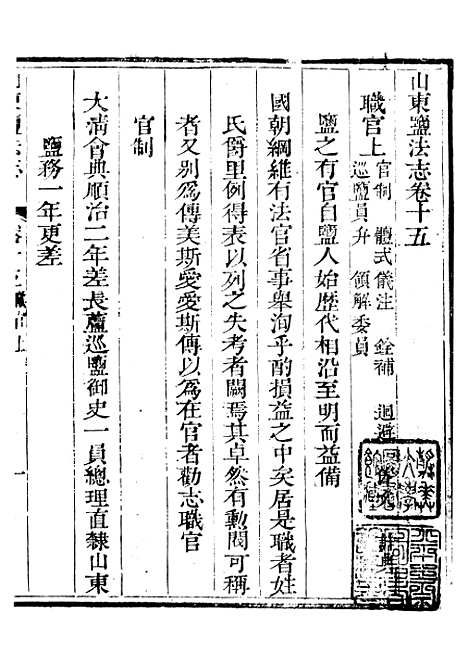 山東鹽法志卷十五
職官上 官制 體式儀注 銓補 迴避
巡鹽員弁 領解委員
鹽之有官自鹽人始歷代相沿至明而益備
國朝綱維有法官省事舉洵乎酌損益之中矣居是職者姓
氏爵里例得表以列之失考者闕焉其卓然有勳閥可稱
者又别為傳美斯愛愛斯傳以為在官者勸志職官
官制
大淸會典順治二年差長蘆巡鹽御史一員總理直隸山東
鹽務一年更差
山東鹽法志 卷十五 職官上 一